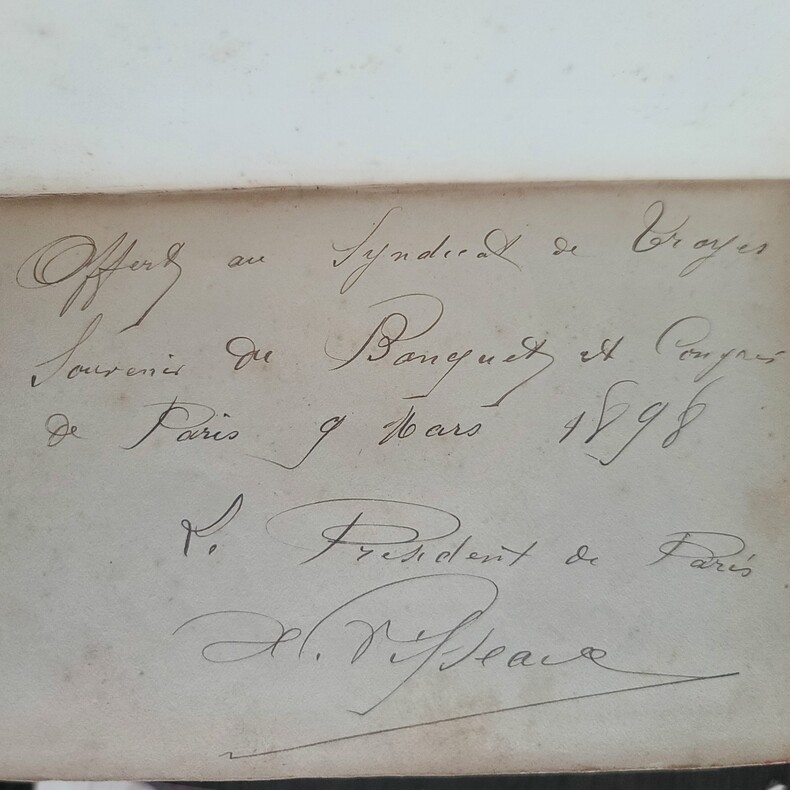 Offert au Syndicat de Troyes
Souvenir du Banquet et Congrès
de Paris 9 Mars 1898
Le Président de Paris